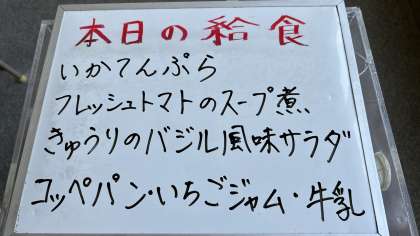 本日の給食
いかてんぷら
フレッシュトマトのスープ煮
きゅうりのバジル風味サラダ
コッペパン・いちごジャム・牛乳